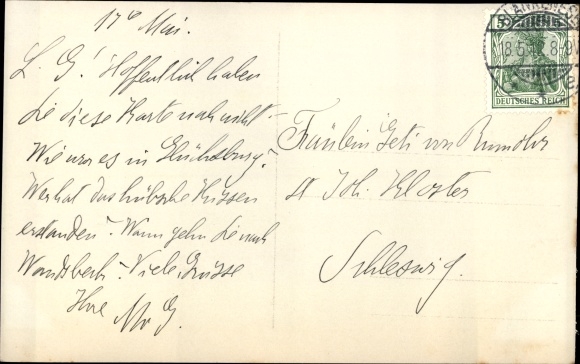 17ᵗ Mai.
L. G! Hoffentlich haben
Sie diese Karte noch nicht -
Wie war es in Glücksburg.?
Wer hat das hübsche Kissen
erstanden - Wann gehn Sie nach
Wandsbeck - Viele Grüsse
Ihre M. G.
Fräulein Geti von Rumohr
St Joh. Kloster
Schleswig.
BLANKENESE
18.5. 8-9
5 5
DEUTSCHES REICH